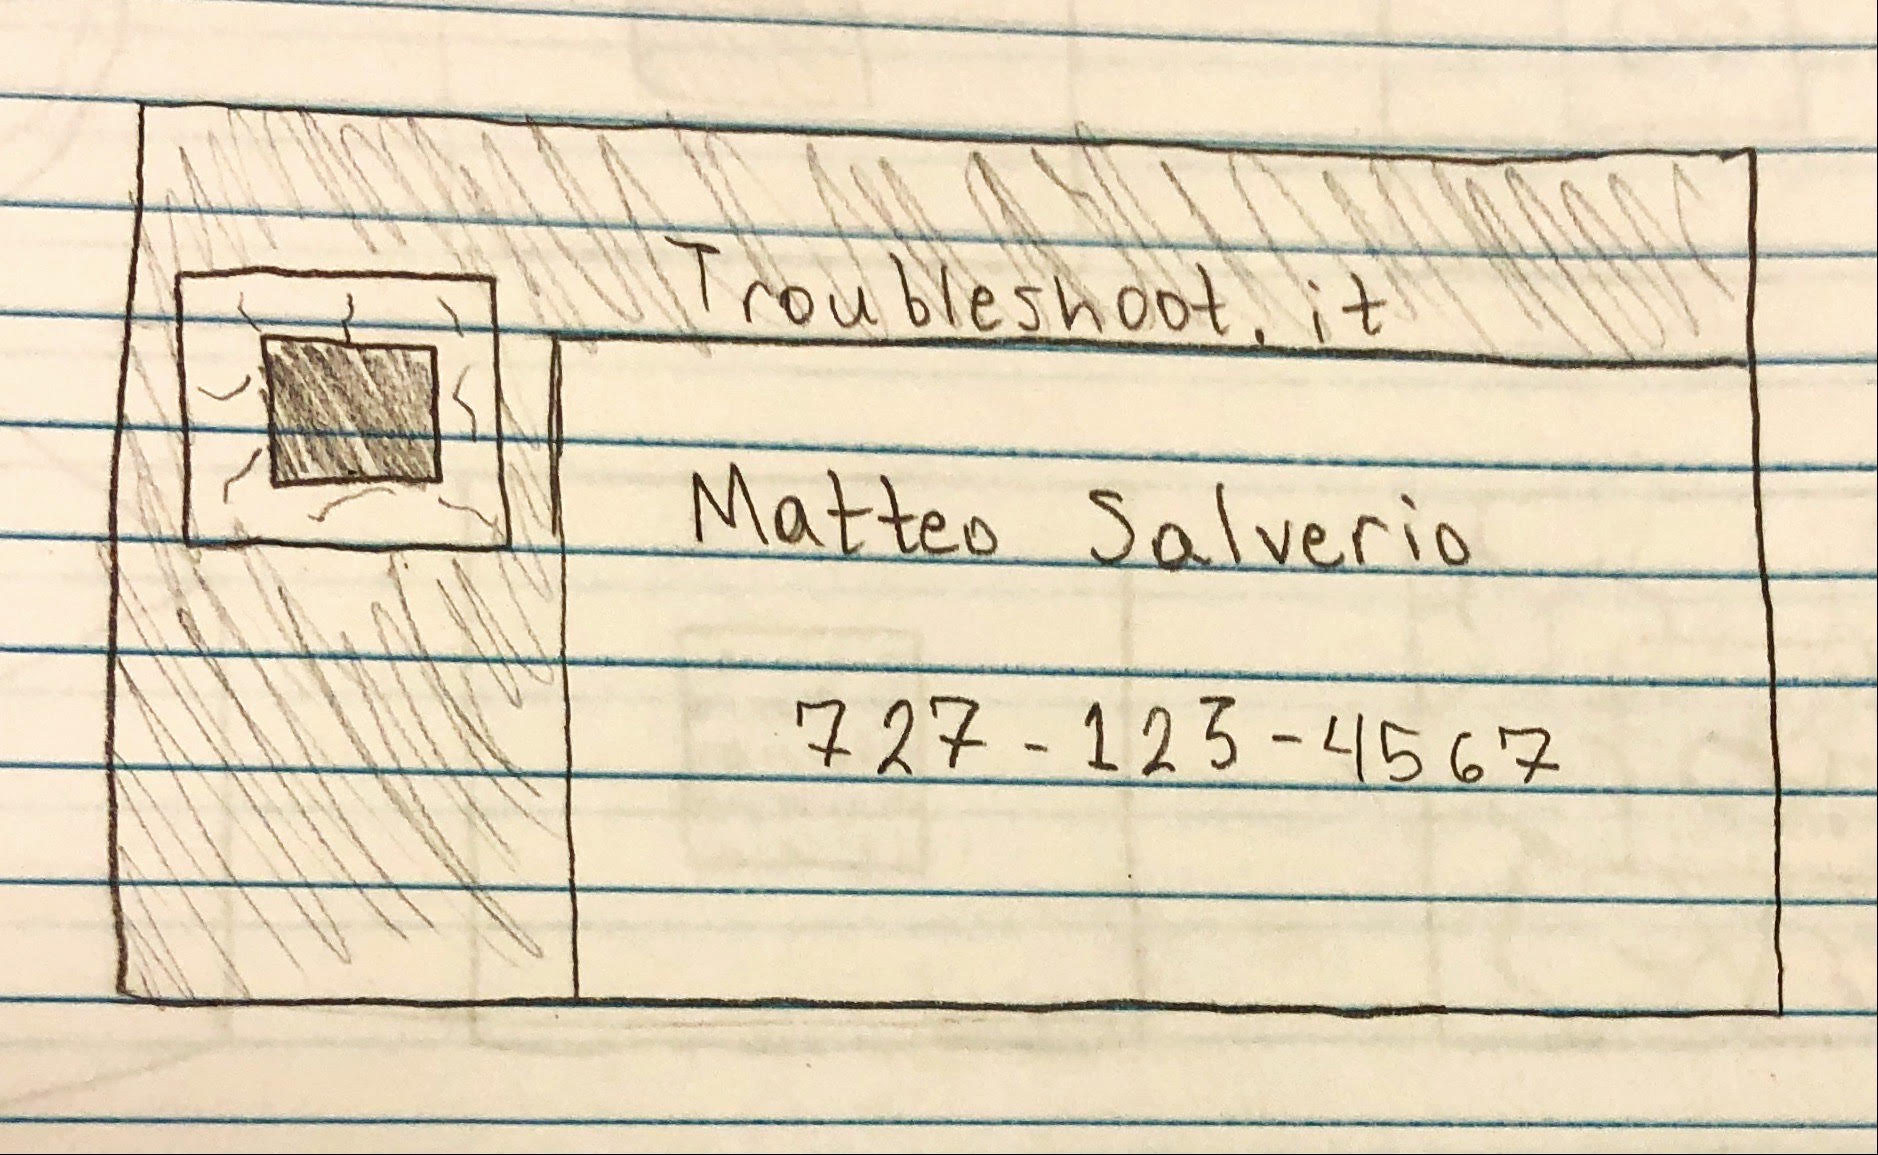 Troubleshoot.it
Matteo Salverio
727-123-4567